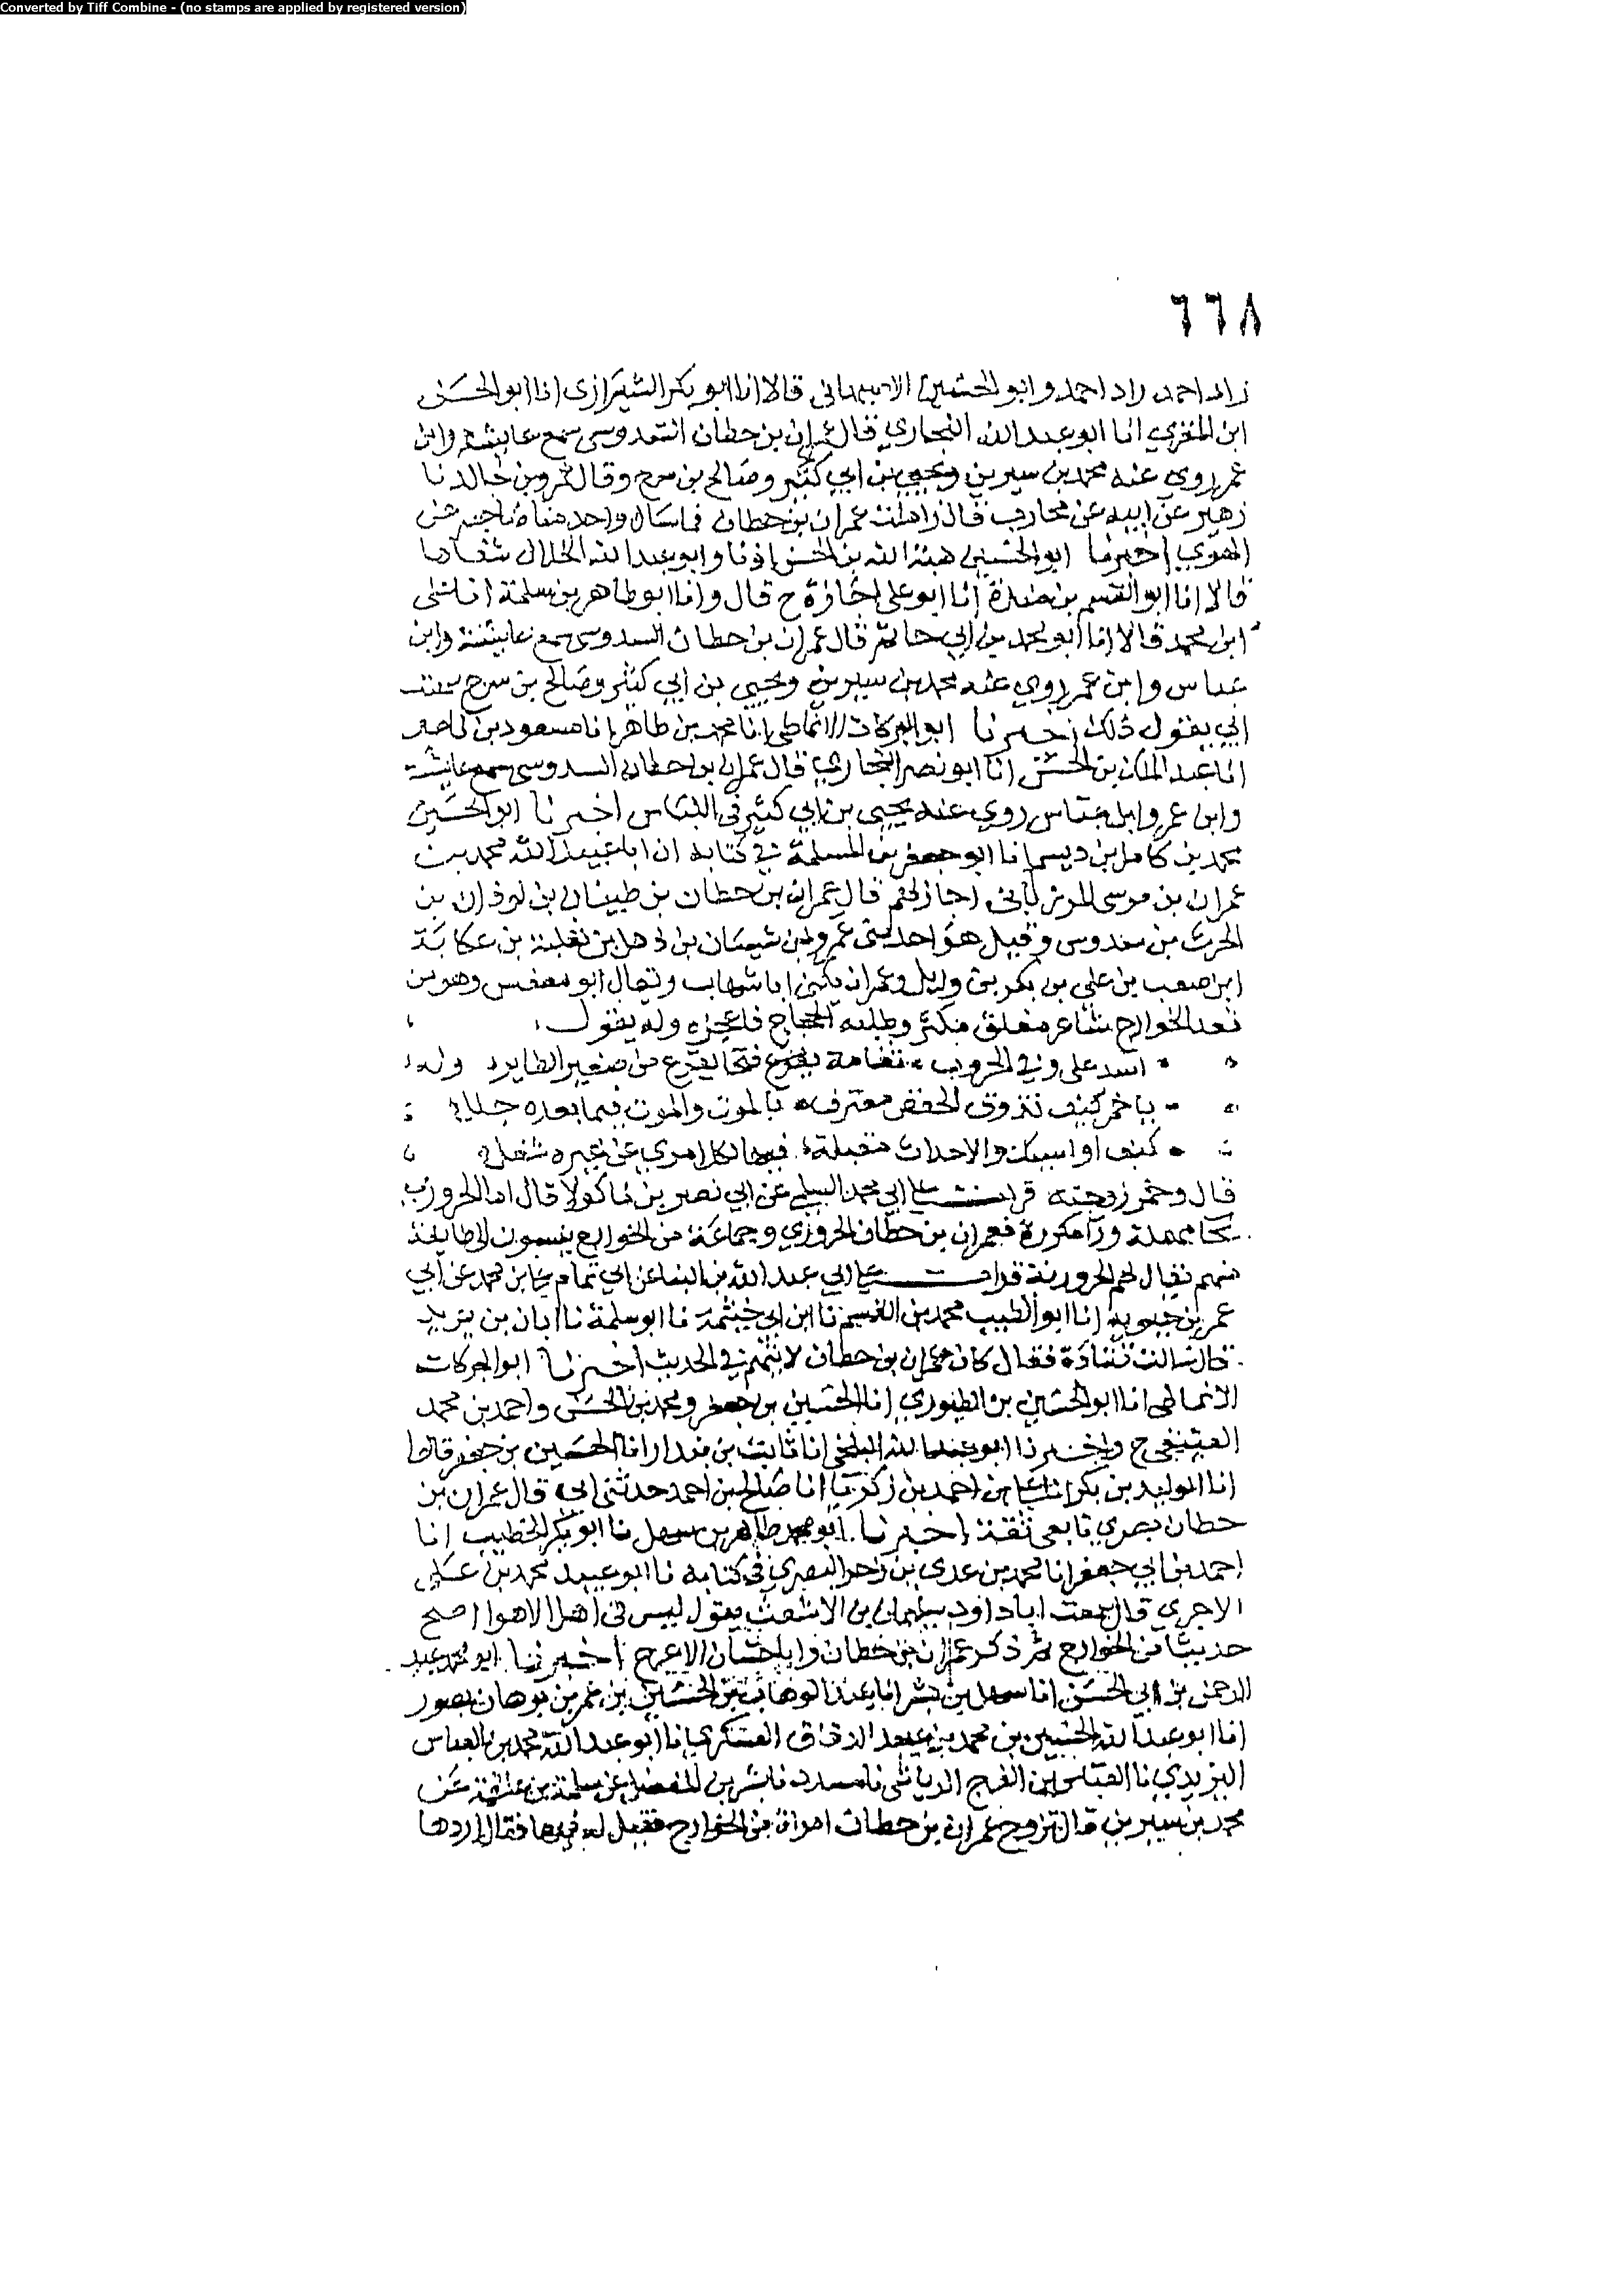 Converted by Tiff Combine - (no stamps are applied by registered version)
٦٦٨
زاد احمد واد احمد وابو الحسين الاصبهاني قالا انا ابو بكر الشيرازي انا ابو الحسن
ابن المقري انا ابو عبد الله البخاري قال عمران بن حطان السدوسي سمع عايشة وابن
عمر روي عنه محمد بن سيرين ويحيى بن ابي كثير وصالح بن سرج وقال عمرو بن خالد نا
زهير عن ابيه عن محارب قال زاملت عمران بن حطان فما سال واحد منا صاحبه عن
الهوي اخبرنا ابو الحسين هبة الله بن الحسن اذنا وابو عبد الله الخلال شفاها
قالا انا ابو القسم بن مندة انا ابو علي اجازة ح قال وانا ابو طاهر بن سلمة انا علي
ابن محمد قالا انا ابو محمد بن ابي حاتم قال عمران بن حطان السدوسي سمع عايشة وابن
عباس وابن عمر روي عنه محمد بن سيرين ويحيى بن ابي كثير وصالح بن سرج سمعت
ابي يقول ذلك اخبرنا ابو البركات الانماطي انا محمد بن طاهر انا مسعود بن ناصر
انا عبد الملك بن الحسن انا ابو نصر البخاري قال عمران بن حطان السدوسي سمع عايشة
وابن عمر وابن عباس روي عنه يحيى بن ابي كثير في اللباس اخبرنا ابو الحسين
محمد بن كامل بن ديسم انا ابو جعفر بن المسلمة في كتابه ان ابا عبيد الله محمد بن
عمران بن موسى المرزباني اجاز لهم قال عمران بن حطان بن ظبيان بن لوذان بن
الحرث بن سدوس وقيل هو احد بني عمرو بن شيبان بن ذهل بن ثعلبة بن عكابة
ابن صعب بن علي بن بكر بن وايل وعمران يكنى ابا شهاب ويقال ابو معفس وهو من
قعد الخوارج شاعر مفلق مكثر وطلبه الحجاج فاعجزه وله يقول
اسد علي وفي الحروب نعامة فتخا من صغير الطاير وله
يا خمر كيف تذوق الخفض معترف بالموت والموت فيما بعده جلل
كيف اواسيك والاحداث مقبلة فيها لكل امري عن غيره شغل
قال وخمر زوجته قرات على ابي محمد السلمي عن ابي نصر بن ماكولا قال اما الحروري
بحا مهملة ورا مكررة فعمران بن حطان الحروري وجماعة من الخوارج ينسبون الى طايفة
منهم يقال لهم الحرورية قرات على ابي عبد الله بن البنا عن ابي تمام علي بن محمد عن ابي
عمر بن حيويه انا ابو الطيب محمد بن القسم نا ابن ابي خيثمة نا ابو سلمة نا ابان بن يزيد
قال سالت قتادة فقال كان عمران بن حطان لا يتهم في الحديث اخبرنا ابو البركات
الانماطي انا ابو الحسين بن الطيوري انا الحسين بن جعفر ومحمد بن الحسن واحمد بن محمد
العتيقي ح واخبرنا ابو عبد الله البلخي انا ثابت بن بندار انا الحسين بن جعفر قالوا
انا الوليد بن بكر انا علي بن احمد بن زكريا انا صالح بن احمد حدثني ابي قال عمران بن
حطان بصري تابعي ثقة اخبرنا ابو محمد طاهر بن سهل نا ابو بكر الخطيب انا
احمد بن ابي جعفر انا محمد بن عدي بن زحر البصري في كتابه نا ابو عبيد محمد بن علي
الاجري قال سمعت ابا داود سليمان بن الاشعث يقول ليس في اهل الاهوا اصح
حديثا من الخوارج ثم ذكر عمران بن حطان وابا حسان الاعرج اخبرنا ابو محمد عبد
الرحمن بن ابي الحسن انا سهل بن بشر انا عبد الوهاب بن الحسين بن عمر بن برهان بصور
انا ابو عبد الله الحسين بن محمد بن عبيد الدقاق العسكري نا ابو عبد الله محمد بن العباس
اليزيدي نا العباس بن الفرج الرياشي نا مسدد نا بشر بن المفضل عن سلمة بن علقمة عن
محمد بن سيرين قال تزوج عمران بن حطان امراة من الخوارج فقيل له فيها فقال اردها